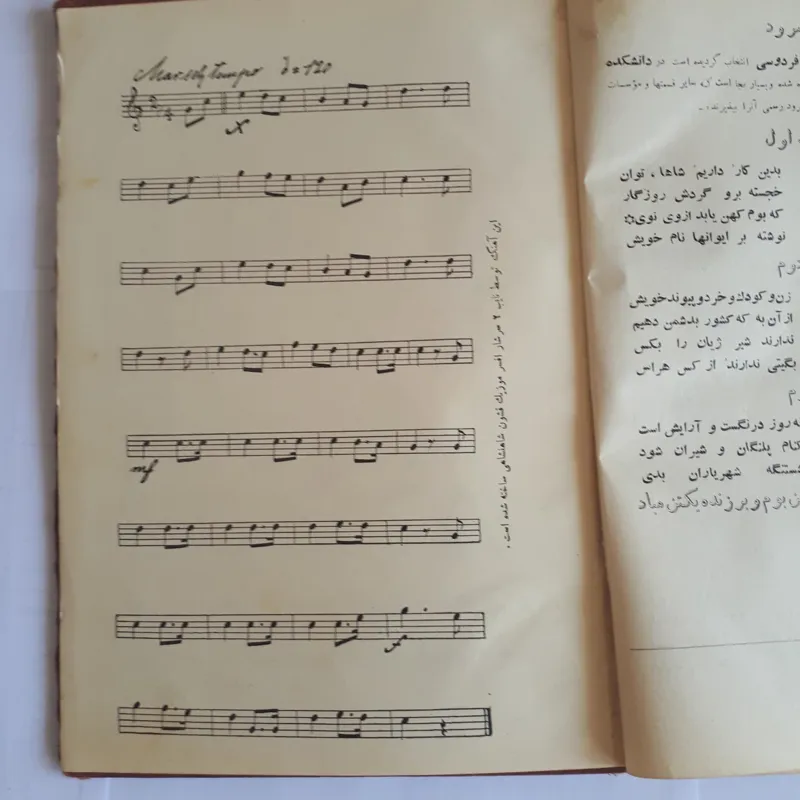 Marsch tempo = 120
mf
f
این آهنگ توسط نایب ۲ سرشار افسر موزیک قشون شاهنشاهی ساخته شده است .
فردوسی انتخاب گردیده است در دانشکده
شده وبسیار بجا است که سایر قسمتها و مؤسسات
اول
بدین کار داریم شاها ، توان
خجسته برو گردش روزگار
که بوم کهن یابد ازوی نوی
نوشته بر ایوانها نام خویش
زن و کودک و خرد و پیوند خویش
از آن به که کشور بدشمن دهیم
ندارند شیر ژیان را بکس
بگیتی ندارند از کس هراس
روز درنگست و آرایش است
پلنگان و شیران شود
شهریاران بدی
بوم و بر زنده یکتن مباد